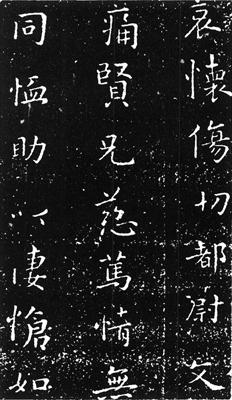 哀懷傷切都尉文
痛賢兄慈篤情無
同恤助以悽愴如